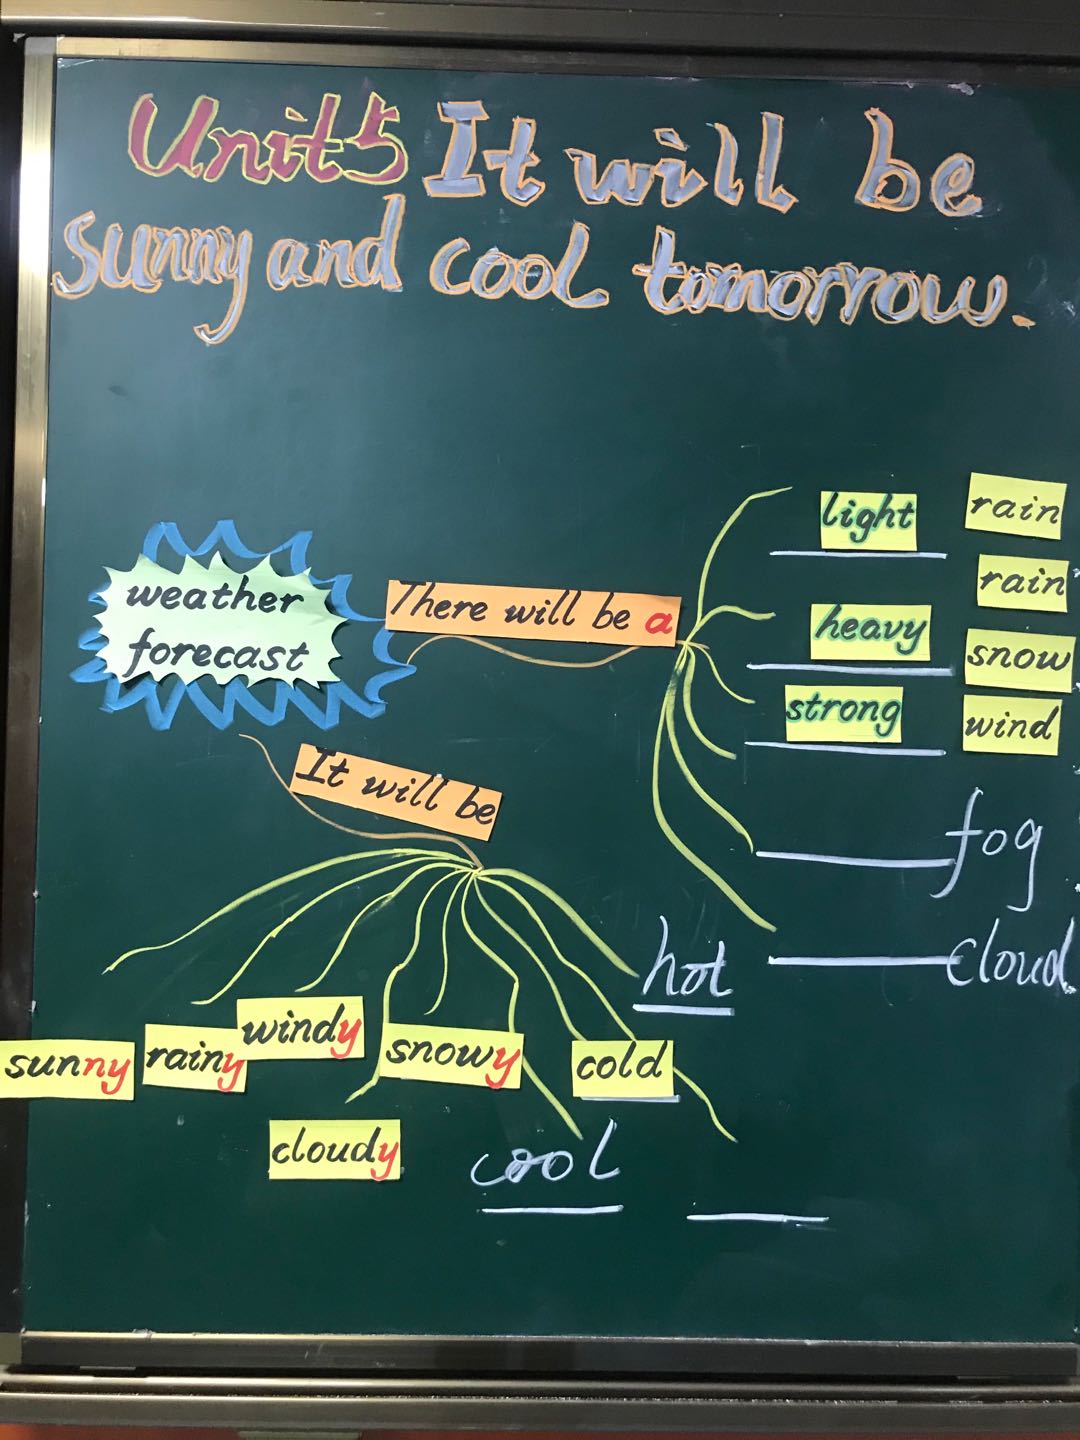 Unit5 It will be
sunny and cool tomorrow.
weather
forecast
There will be a
light rain
rain
heavy
snow
strong wind
fog
cloud
It will be
hot
sunny rainy windy snowy cold
cloudy cool